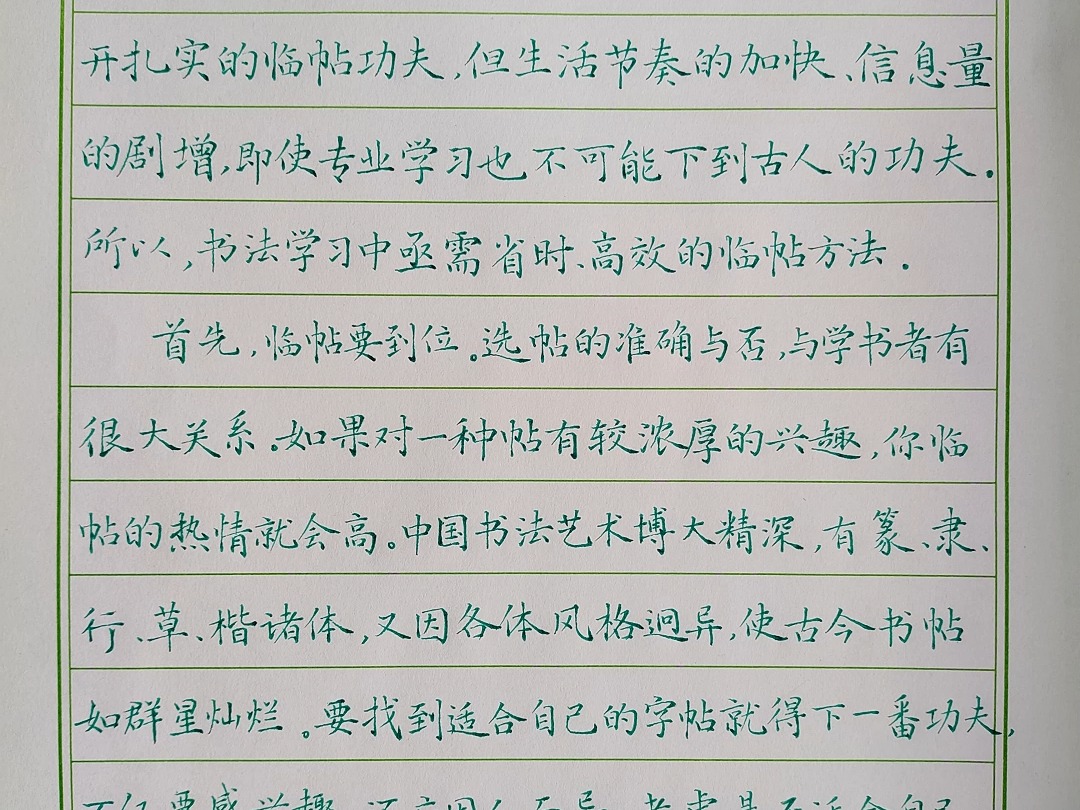 开扎实的临帖功夫,但生活节奏的加快、信息量
的剧增,即使专业学习也不可能下到古人的功夫.
所以,书法学习中亟需省时、高效的临帖方法.
首先,临帖要到位。选帖的准确与否,与学书者有
很大关系。如果对一种帖有较浓厚的兴趣,你临
帖的热情就会高。中国书法艺术博大精深,有篆、隶、
行、草、楷诸体,又因各体风格迥异,使古今书帖
如群星灿烂。要找到适合自己的字帖就得下一番功夫,